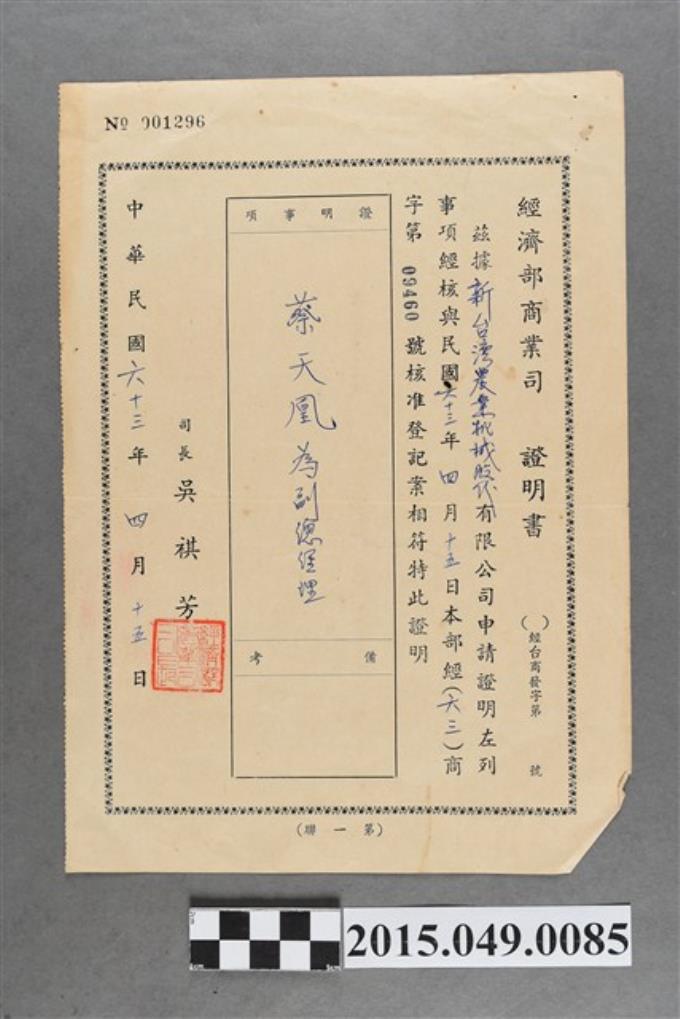 № 001296
經濟部商業司 證明書
( )經台商發字第 號
茲據新台湾農業机械股份有限公司申請證明左列
事項經核與民國六十三年四月十五日本部經(六三)商
字第 09460 號核准登記案相符特此證明
證明事項
蔡天凰為副總經理
備考
司長 吳祺芳
中華民國六十三年四月十五日
(第一聯)
2015.049.0085